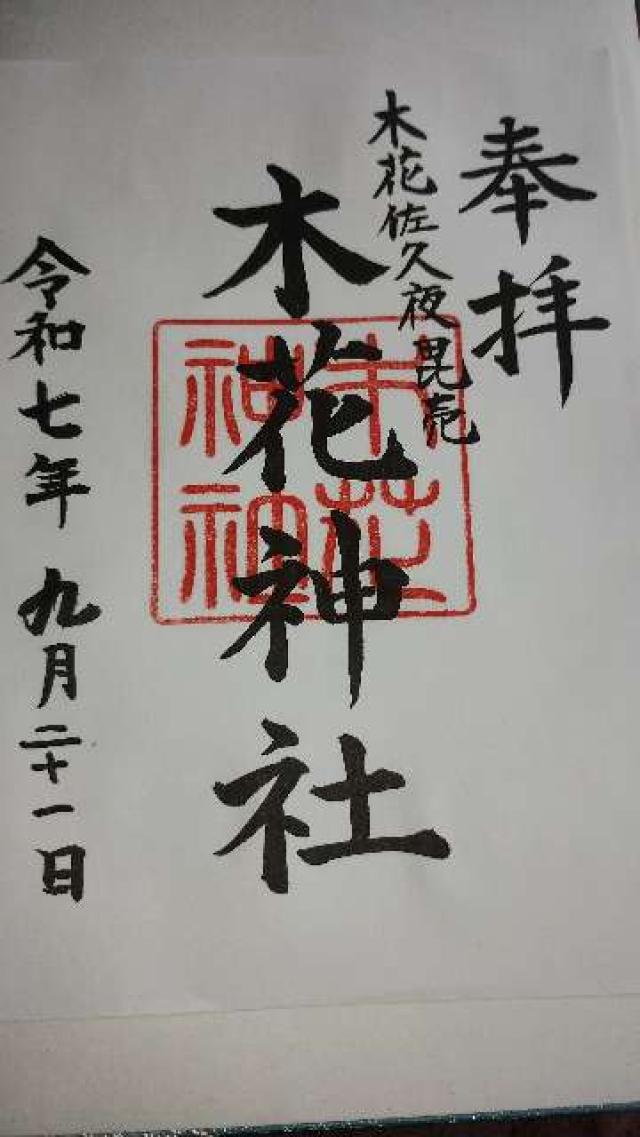 奉拝
木花佐久夜毘売
木花神社
木花
神社
令和七年九月二十一日